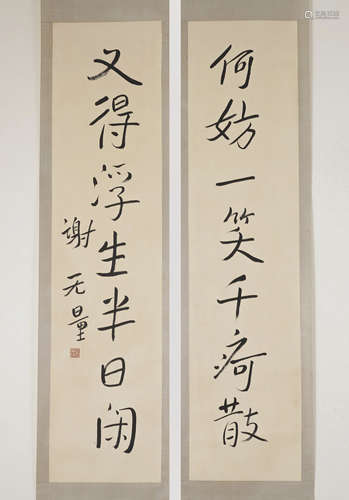 何妨一笑千痾散
又得浮生半日闲
谢无量